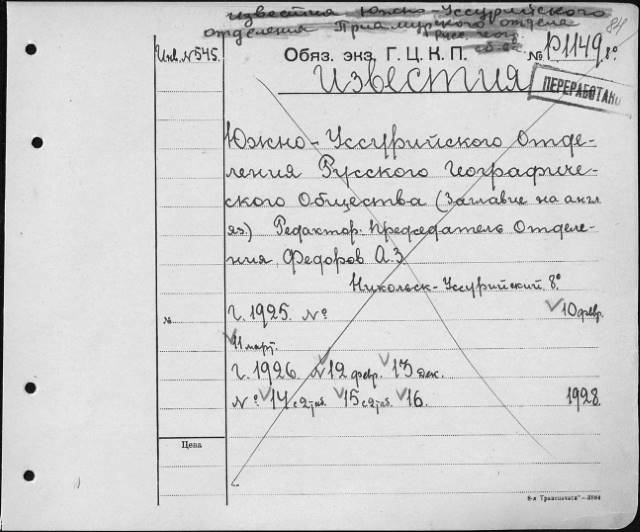 Известия Южно-Уссурийского
отделения Приамурского отдела
Русс. геогр.
об-ва
84
Инв. № 545.
Обяз. экз. Г. Ц. К. П.
№ Р1149 8°
Известия
ПЕРЕРАБОТАНО
Южно-Уссурийского Отде-
ления Русского Географиче-
ского Общества (Заглавие на англ
яз.) Редактор: Председатель Отделе-
ния, Федоров А.З.
Никольск-Уссурийский. 8°
№
Г. 1925. № 10 февр.
11 март.
Г. 1926. № 12 февр. 13 дек.
№ 14 с 2 таб. 15 с 2 таб. 16. 1928.
Цена